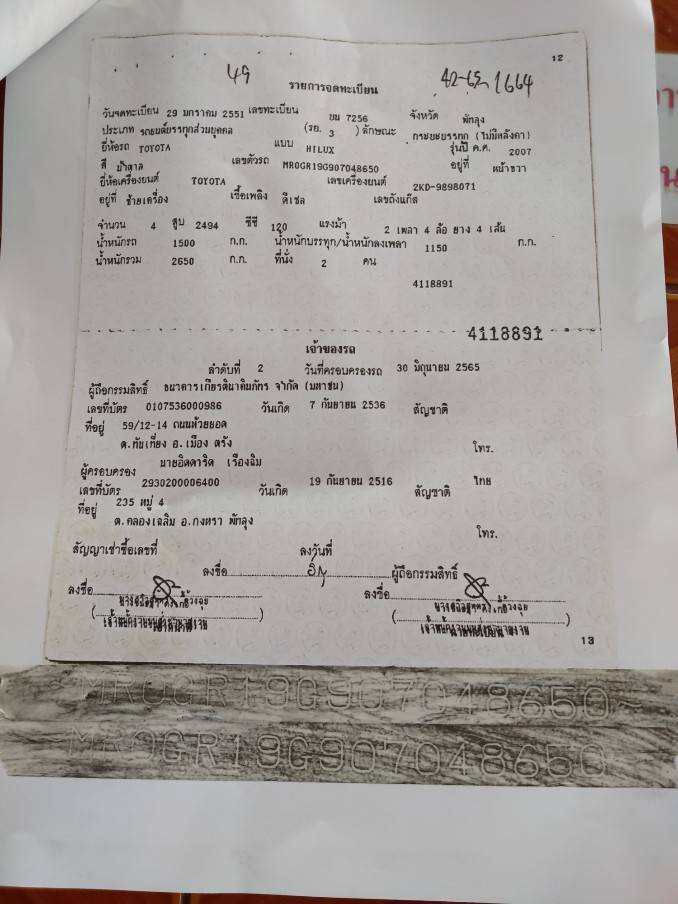 12
49
รายการจดทะเบียน
42-65-1664
วันจดทะเบียน 29 มกราคม 2551 เลขทะเบียน บม 7256 จังหวัด พัทลุง
ประเภท รถยนต์บรรทุกส่วนบุคคล (รย. 3 ) ลักษณะ กระบะบรรทุก (ไม่มีหลังคา)
ยี่ห้อรถ TOYOTA แบบ HILUX รุ่นปี ค.ศ. 2007
สี น้ำตาล เลขตัวรถ MR0GR19G907048650 อยู่ที่ หน้าขวา
ยี่ห้อเครื่องยนต์ TOYOTA เลขเครื่องยนต์ 2KD-9898071
อยู่ที่ ซ้ายเครื่อง เชื้อเพลิง ดีเซล เลขถังแก๊ส
จำนวน 4 สูบ 2494 ซีซี 120 แรงม้า 2 เพลา 4 ล้อ ยาง 4 เส้น
น้ำหนักรถ 1500 ก.ก. น้ำหนักบรรทุก/น้ำหนักลงเพลา 1150 ก.ก.
น้ำหนักรวม 2650 ก.ก. ที่นั่ง 2 คน
4118891
4118891
เจ้าของรถ
ลำดับที่ 2 วันที่ครอบครองรถ 30 มิถุนายน 2565
ผู้ถือกรรมสิทธิ์ ธนาคารเกียรตินาคินภัทร จำกัด (มหาชน)
เลขที่บัตร 0107536000986 วันเกิด 7 กันยายน 2536 สัญชาติ
ที่อยู่ 59/12-14 ถนนห้วยยอด
ต.ทับเที่ยง อ.เมือง ตรัง
โทร.
ผู้ครอบครอง นายอิดดาริด เรืองฉิม
เลขที่บัตร 2930200006400 วันเกิด 19 กันยายน 2516 สัญชาติ ไทย
ที่อยู่ 235 หมู่ 4
ต.คลองเฉลิม อ.กงหรา พัทลุง
โทร.
สัญญาเช่าซื้อเลขที่ ลงวันที่
ลงชื่อ ผู้ถือกรรมสิทธิ์
ลงชื่อ ลงชื่อ
13
MR0GR19G907048650~
~MR0GR19G907048650